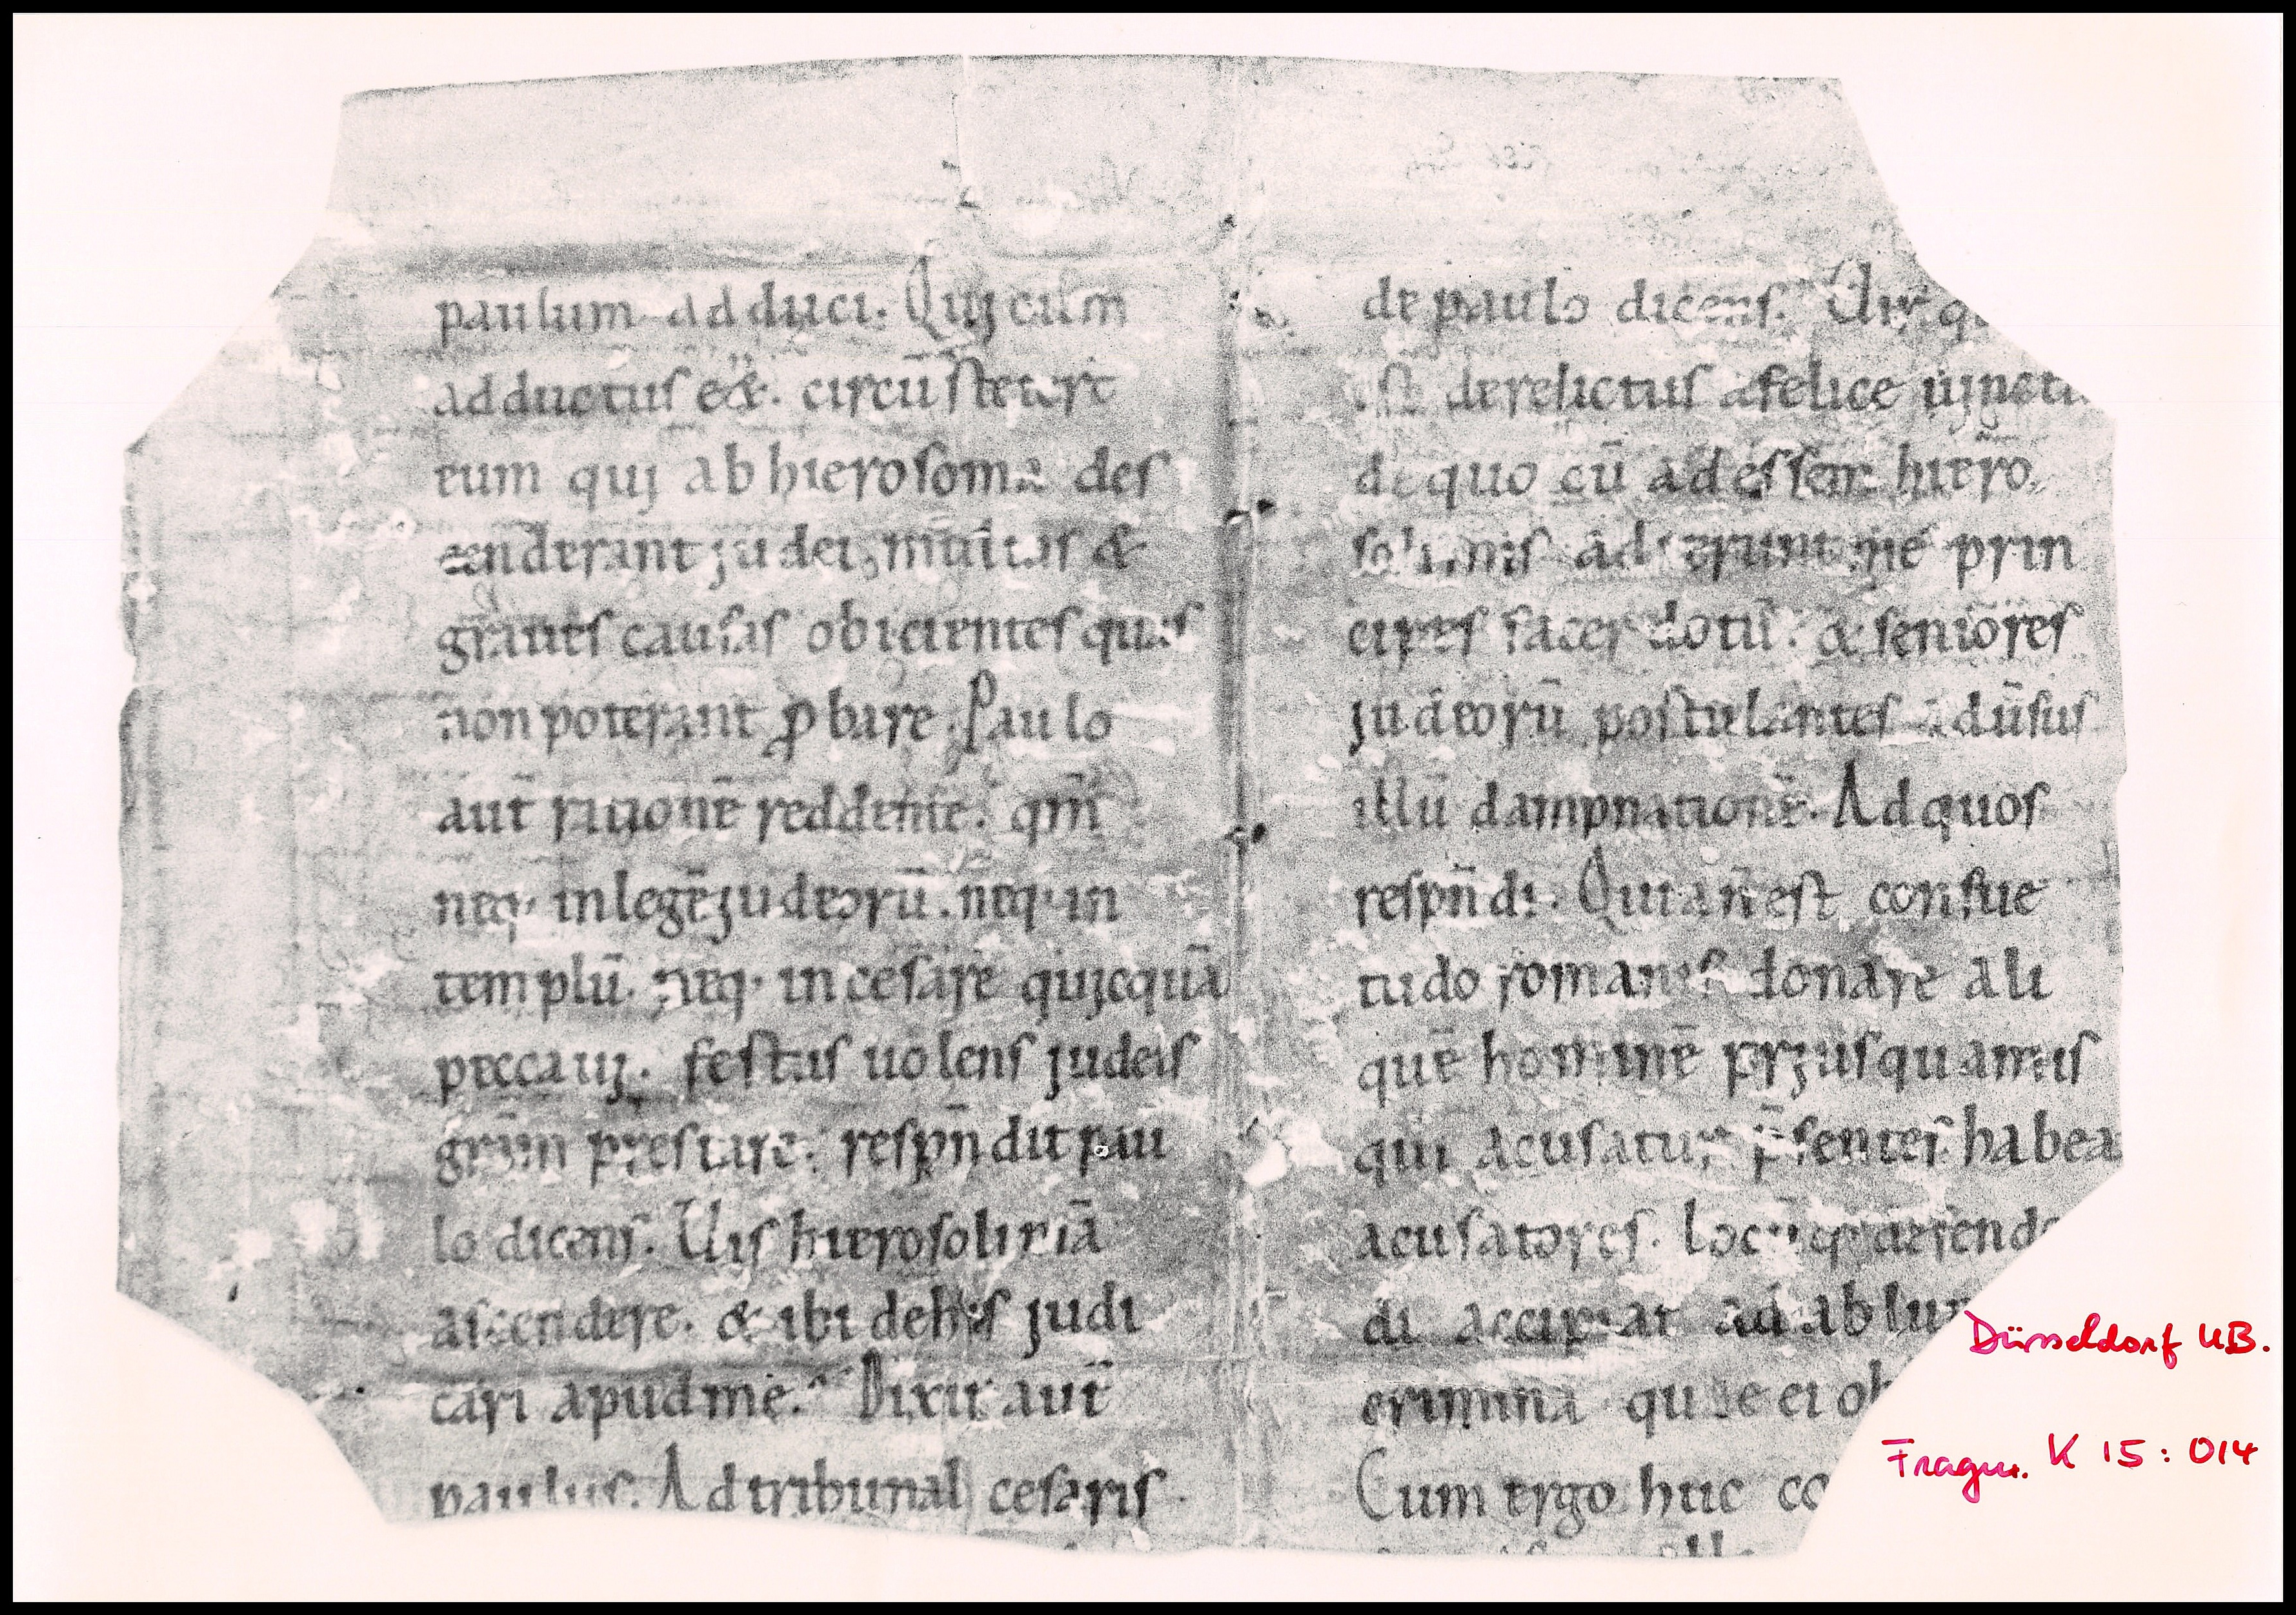 paulum adduci. Quj cum
adductus e&. circū steter̄t
eum quj ab hierosoma des
cenderant judei, multas &
graues causas obicientes quas
non poterant ꝓbare. Paulo
aut̄ racjonē reddente. qm̄
neq; in legē judeorū. neq; in
templū. neq; in cesarē qujcquā
peccauj. festus uolens judeis
grām prestare. respn̄dit pau
lo dicens. Uis hierosolimā
ascendere. & ibi de his judi
cari apud me. Dixit aut̄
paulus. Ad tribunal cesaris
de paulo dicens. Uir
est derelictus a felice ujnct
de quo cū adessem hiero
solimis adierunt me prin
cipes sacerdotū. & seniores
judeorū postulantes adūsus
illū dampnationē. Ad quos
respn̄di. Quia n̄ est consue
tudo romanis donare ali
quē hominē prjusquam is
qui acusatur p̄sentes habea
acusatores. locūq; defend
di accipiat ad ablu
crimina quae ei ob
Cum ergo huc co
Düsseldorf UB.
Fragm. K 15 : 014